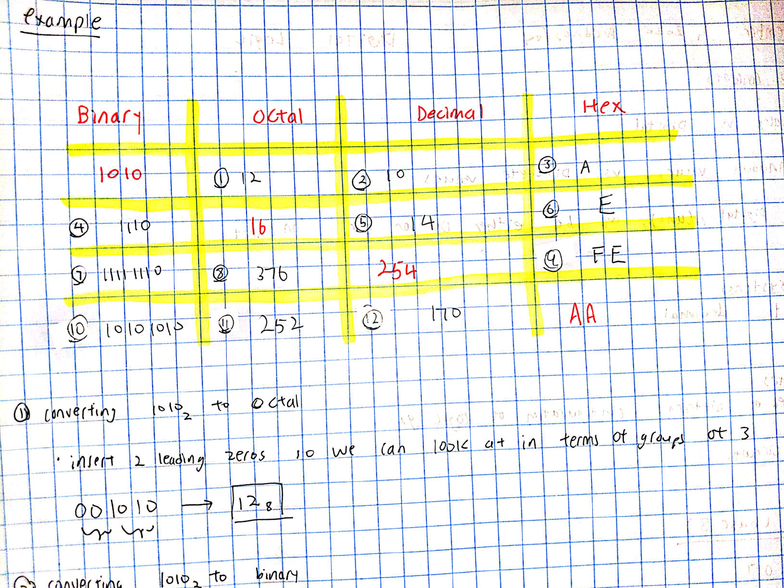 example
Binary Octal Decimal Hex
1010 ① 12 ② 10 ③ A
④ 1110 16 ⑤ 14 ⑥ E
⑦ 11111110 ⑧ 376 254 ⑨ FE
⑩ 10101010 ⑪ 252 ⑫ 170 AA
① converting 1010₂ to Octal
· insert 2 leading zeros so we can look at in terms of groups of 3
001010 → 12₈
② converting 1010₂ to binary